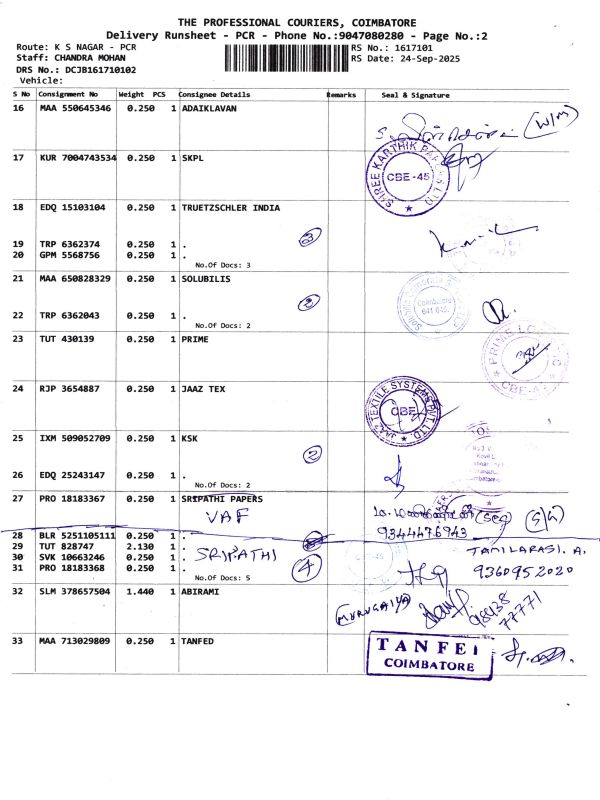 THE PROFESSIONAL COURIERS, COIMBATORE
Delivery Runsheet - PCR - Phone No.:9047080280 - Page No.:2
Route: K S NAGAR - PCR
RS No.: 1617101
Staff: CHANDRA MOHAN
RS Date: 24-Sep-2025
DRS No.: DCJB161710102
Vehicle:
S No Consignment No Weight PCS Consignee Details Remarks Seal & Signature
16 MAA 550645346 0.250 1 ADAIKLAVAN
(W/M)
17 KUR 7004743534 0.250 1 SKPL
SHREE KARTHIK PAPERS LTD
CBE-45
18 EDQ 15103104 0.250 1 TRUETZSCHLER INDIA
3
19 TRP 6362374 0.250 1 .
20 GPM 5568756 0.250 1 .
No.Of Docs: 3
21 MAA 650828329 0.250 1 SOLUBILIS
2
Coimbatore
641 045
22 TRP 6362043 0.250 1 .
No.Of Docs: 2
23 TUT 430139 0.250 1 PRIME
CBE-4
24 RJP 3654887 0.250 1 JAAZ TEX
JAAZ TEXTILE SYSTEMS PVT. LTD
CBE
25 IXM 509052709 0.250 1 KSK
2
26 EDQ 25243147 0.250 1 .
No.Of Docs: 2
27 PRO 18183367 0.250 1 SRIPATHI PAPERS
VAF
9344476943
28 BLR 5251105111 0.250 1 .
29 TUT 828747 2.130 1 . SRIPATHI
TAMILARASI. A.
30 SVK 10663246 0.250 1 .
4
31 PRO 18183368 0.250 1 .
9360952020
No.Of Docs: 5
32 SLM 378657504 1.440 1 ABIRAMI
MURUGAIYA
98438
77771
33 MAA 713029809 0.250 1 TANFED
TANFE
COIMBATORE